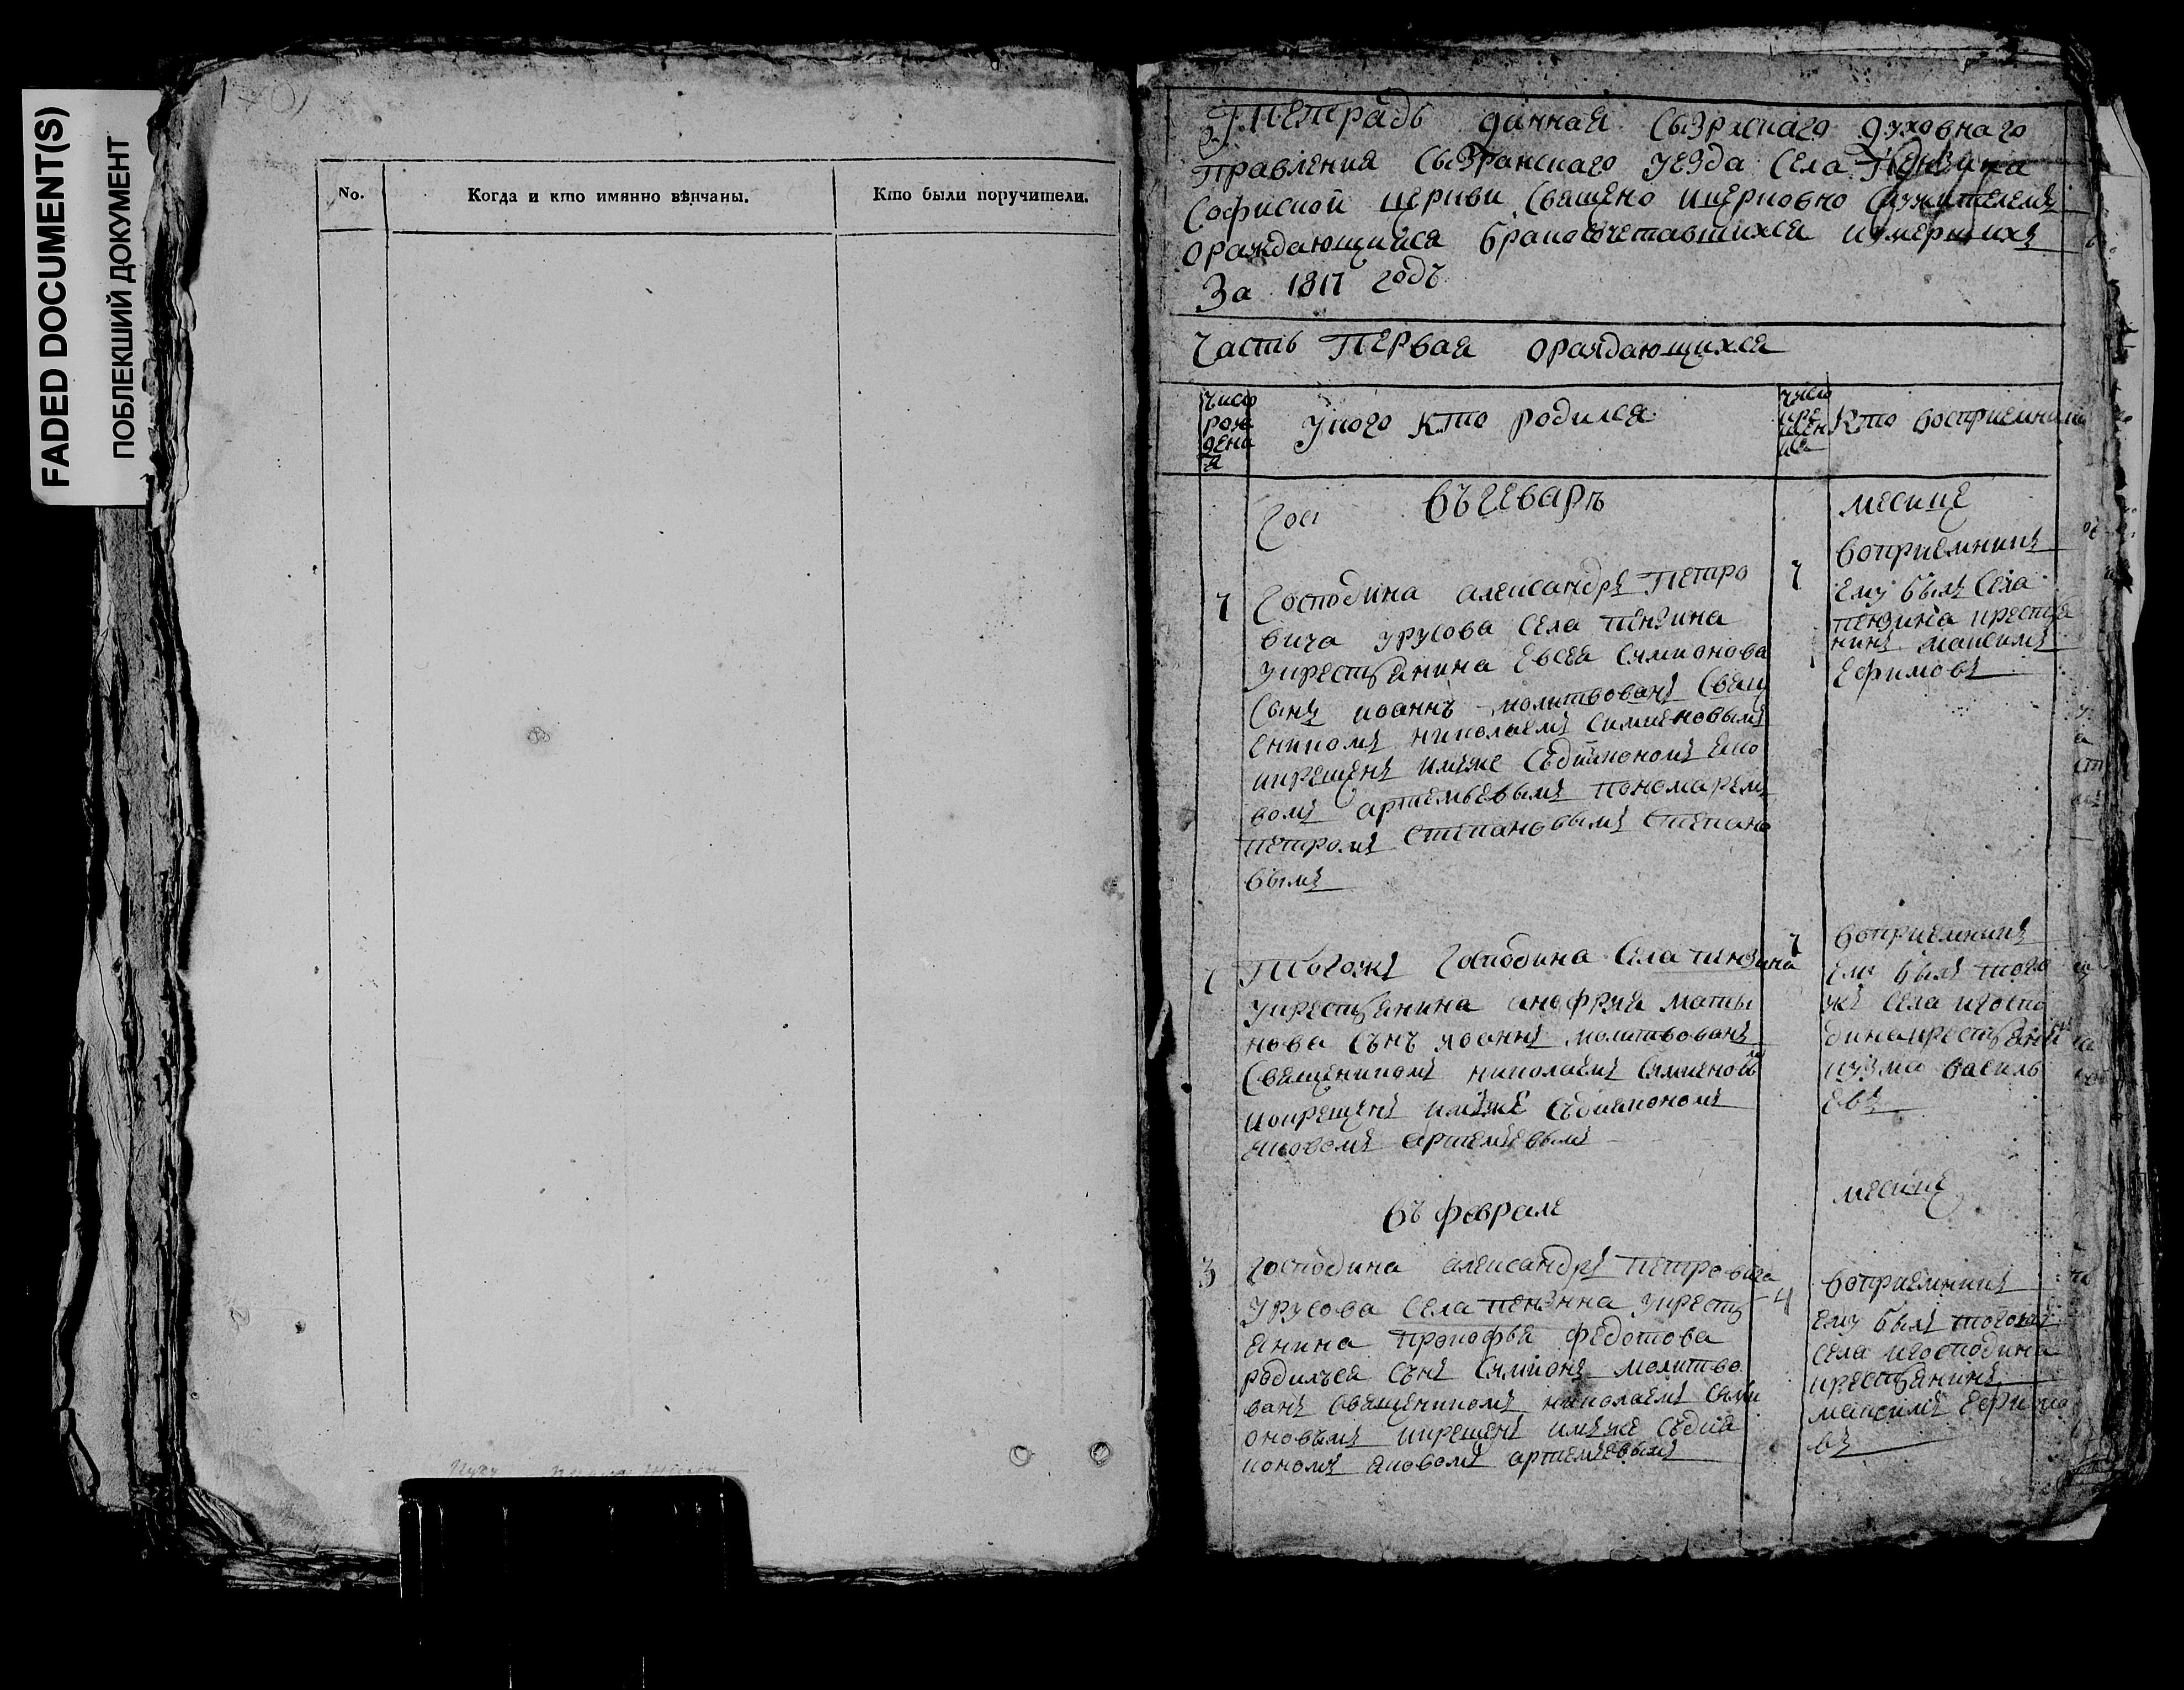 FADED DOCUMENT(S)
ПОБЛЕКШИЙ ДОКУМЕНТ
No.
Когда и кто имянно вѣнчаны.
Кто были поручители.
Тетрадь данная Сызрскаго духовнаго
правления Сызранскаго уезда Села Пензина
Софиской церкви Священо ицерковно Служителемъ
ораждающийся бракосочетавшихся иумершихъ
За 1817 годъ
Часть Первая ораждающихся
число рождения
Укого кто родился
число крещения
Кто восприемники
Гос
въ Геварѣ
месице
7
Господина александръ Петро
вича урусова Села пензина
укрестьянина Евсея Сямионова
Сынъ иоаннъ молитвованъ Свящ
еникомъ николаемъ Симиеновымъ
икрещенъ имъже Съдиякономъ Еко
вомъ артемьевымъ пономаремъ
петромъ степановымъ степано
вымъ
7
вотриемникъ
ему былъ Села
пензина крестья
нинъ максимъ
Ефимовъ
7
Тогожъ господина Села пензина
укрестьянина анофрия марты
нова Сынъ иоаннъ молитвованъ
Священикомъ николаемъ Сямиеновы
икрещенъ имъже Съдиякономъ
яковомъ артемьевымъ
7
вотриемникъ
ему былъ того
жъ села игоспо
дина крестьяни
кузма василь
евъ
въ феврале
месице
3
господина александръ Петровича
Урусова Села пензина укресть
янина прокофья федотова
родилъся Сынъ Сямионъ молитво
ванъ Священикомъ николаемъ Сями
оновымъ икрещенъ имъже Съдия
кономъ яковомъ артемьевымъ
4
вотриемникъ
ему былъ тогожъ
села игосподина
крестьянинъ
максимъ Ефимо
въ